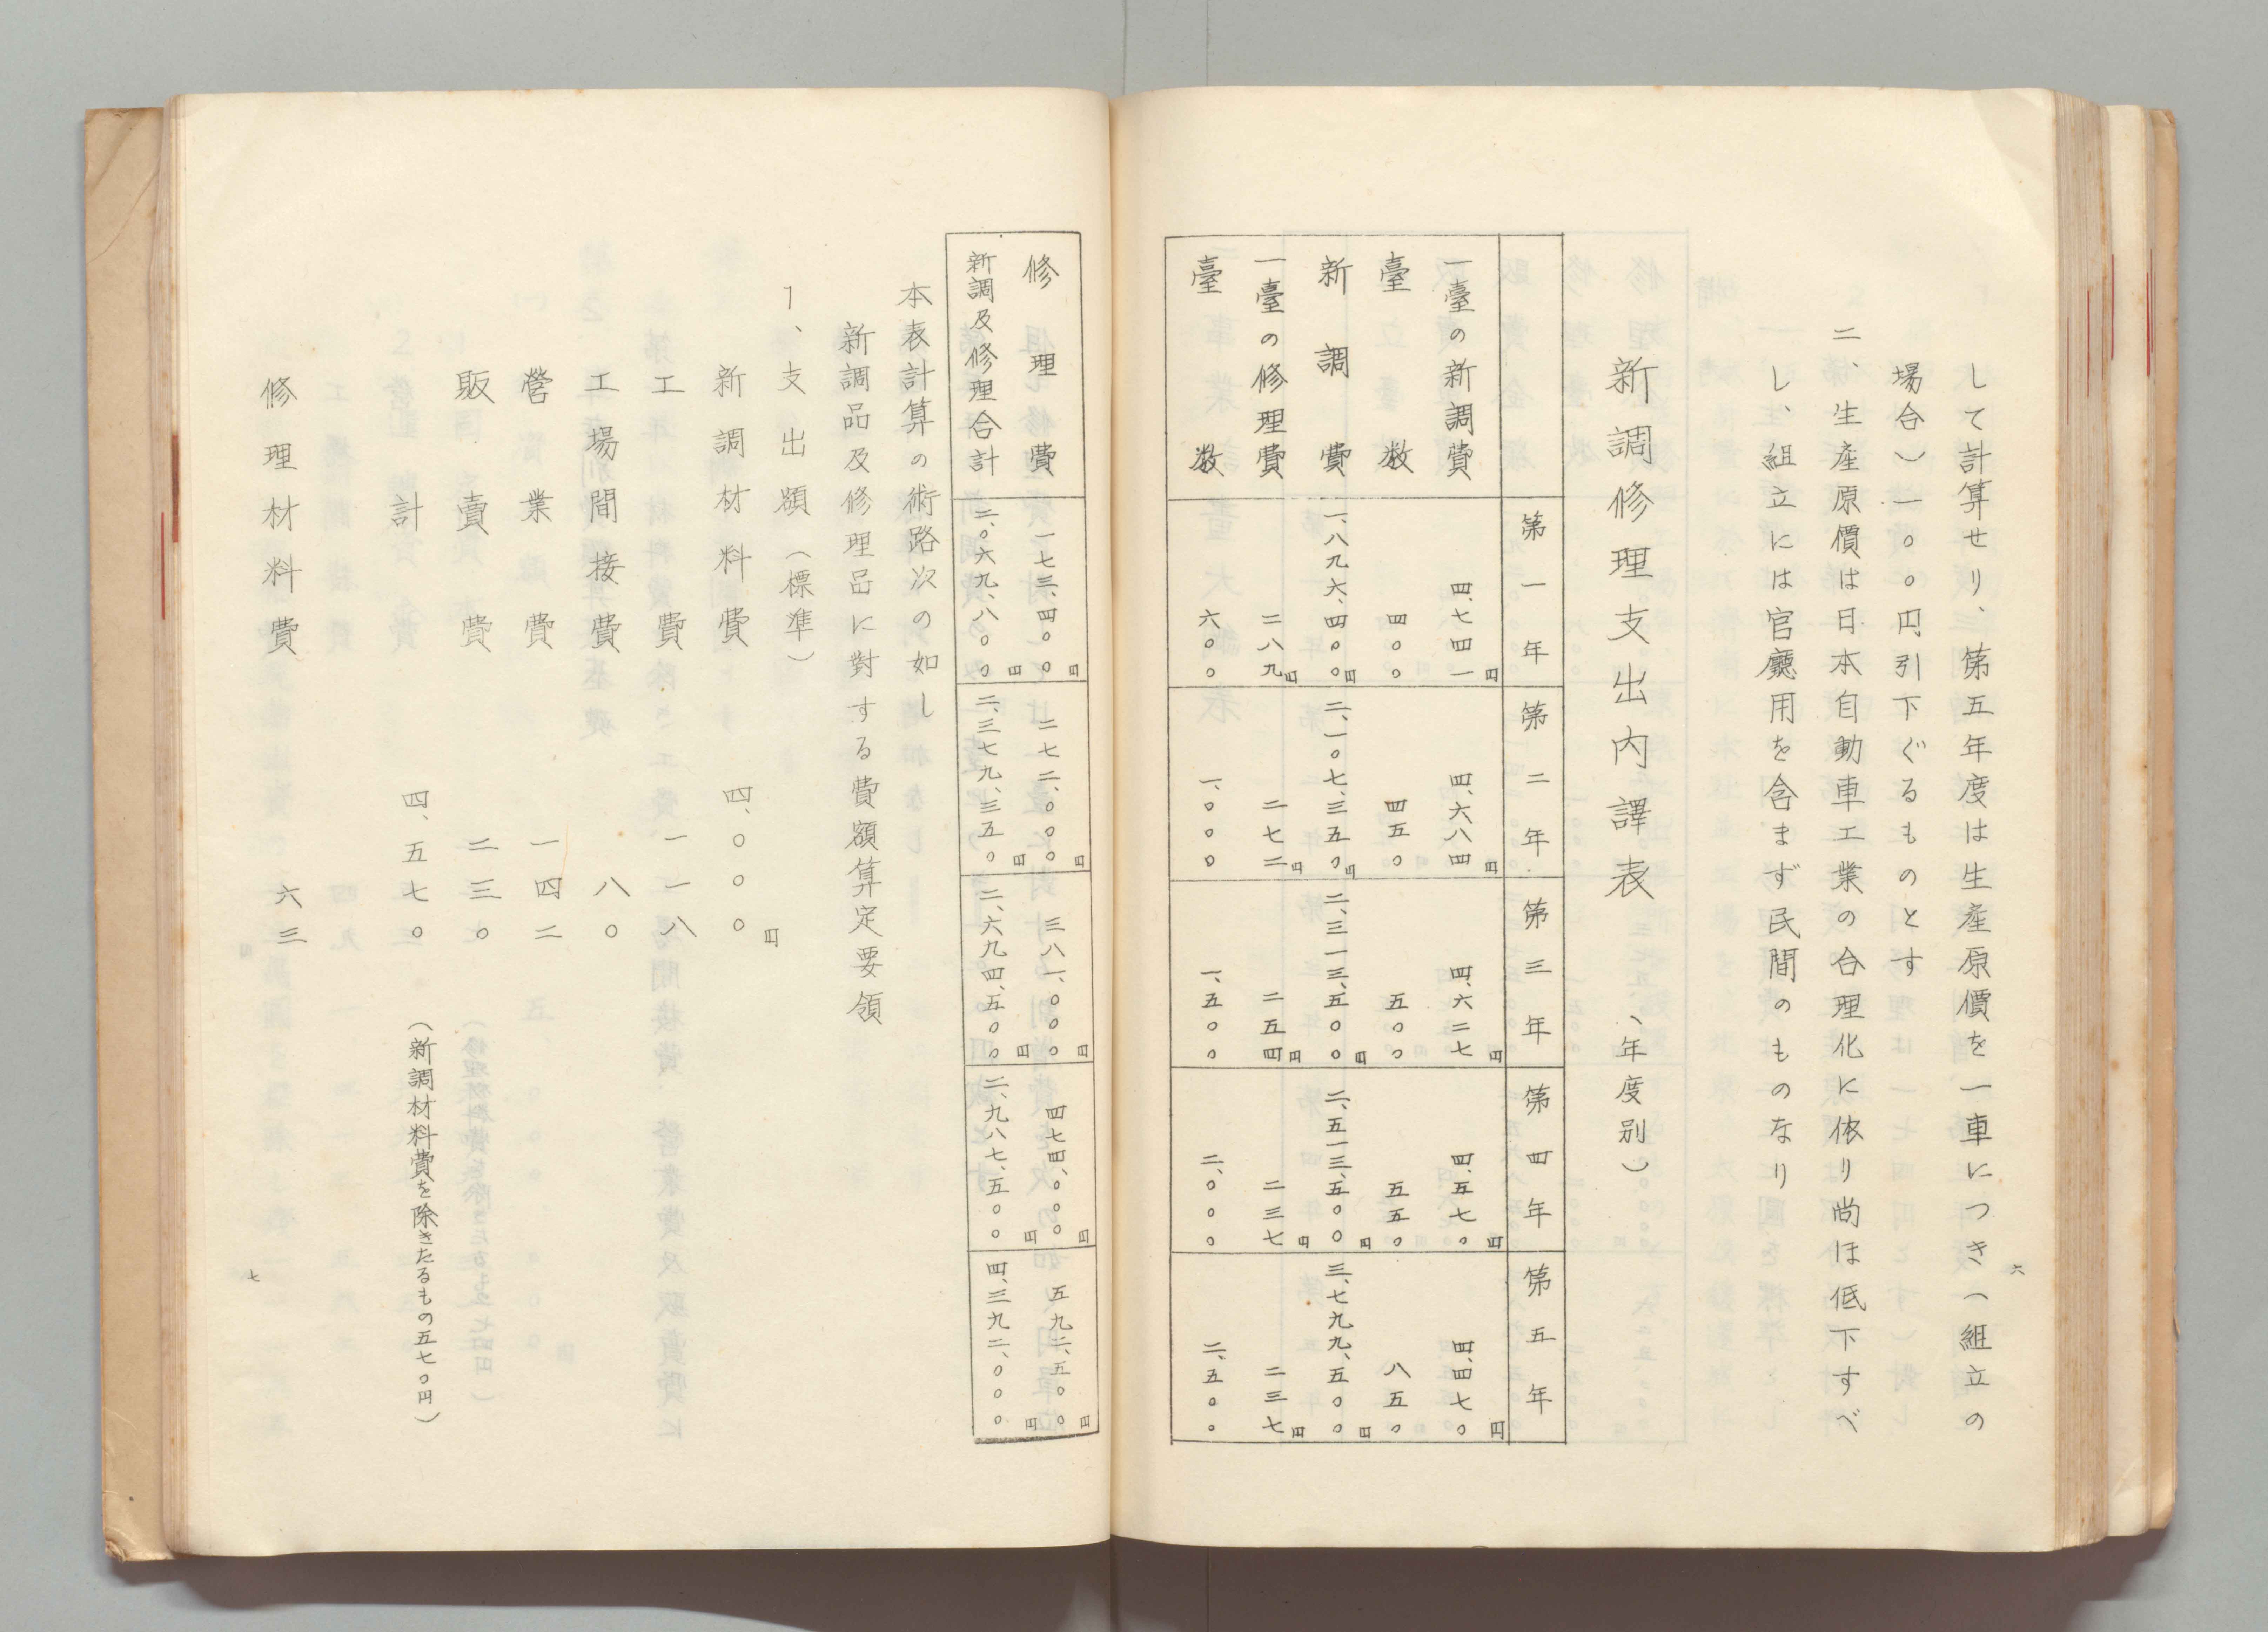 して計算せり、第五年度は生産原價を一車につき（組立の
場合）一〇〇円引下ぐるものとす
二、生産原價は日本自動車工業の合理化に依り尚ほ低下すべ
し、組立には官廳用を含まず民間のものなり
新調修理支出内譯表（年度別）
第一年 第二年 第三年 第四年 第五年
一臺の新調費 四、七四一円 四、六八四円 四、六二七円 四、五七〇円 四、四七〇円
臺数 四〇〇 四五〇 五〇〇 五五〇 八五〇
新調費 一、八九六、四〇〇円 二、一〇七、三五〇円 二、三一三、五〇〇円 二、五一三、五〇〇円 三、七九九、五〇〇円
一臺の修理費 二八九円 二七二円 二五四円 二三七円 二三七円
臺数 六〇〇 一、〇〇〇 一、五〇〇 二、〇〇〇 二、五〇〇
六
修理費 一七三、四〇〇円 二七二、〇〇〇円 三八一、〇〇〇円 四七四、〇〇〇円 五九二、五〇〇円
新調及修理合計 二、〇六九、八〇〇円 二、三七九、三五〇円 二、六九四、五〇〇円 二、九八七、五〇〇円 四、三九二、〇〇〇円
本表計算の術路次の如し
新調品及修理品に對する費額算定要領
1、支出額（標準）
新調材料費 四、〇〇〇円
工費 一一八
工場間接費 八〇
營業費 一四二
販賣費 二三〇
計 四、五七〇（新調材料費を除きたるもの五七〇円）
修理材料費 六三
七